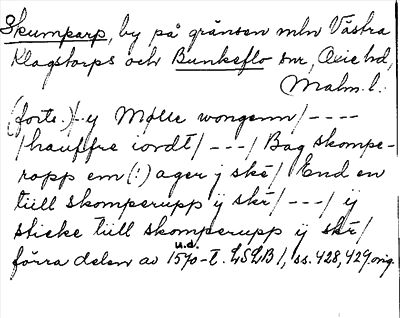 Skumparp, by på gränsen mln Västra
Klagstorps och Bunkeflo snr, Oxie hd,
Malm. l.
(forts.) /- y Mølle wongenn/ ----
/ hauffre iordt/ ---/ Bag skompe-
rapp em (:) ager j skè/ End en
tüll skomperupp ÿ skè/ ---/ ÿ
sticke tüll skomperupp ÿ skè/
förra delen av 1570-t. LSLB 1, ss. 428, 429 orig.
u.d.